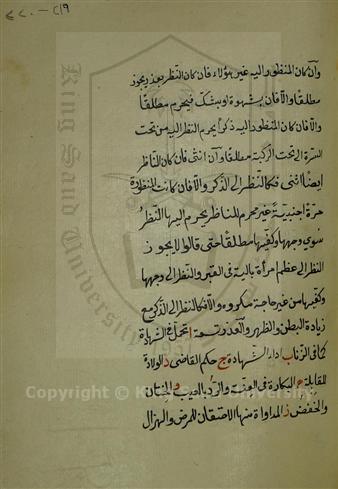 وان كان المنظور اليه غير هؤلاء فان كان النظر بعذر يجوز
مطلقا والا فان بشهوة او بشك فيحرم مطلقا
والا فان كان المنظور اليه ذكرا يحرم النظر اليه من تحت
السرة الى تحت الركبة مطلقا وان انثى فان كان الناظر
ايضا انثى فكالنظر الى الذكر والا فان كانت المنظورة
حرة اجنبية غير محرم للناظر يحرم اليها النظر
سوى وجهها وكفيها مطلقا حتى قالوا لا يجوز
النظر الى عظم امرأة بالية في القبر والنظر الى وجهها
وكفيها من غير حاجة مكروه والا فكالنظر الى الذكر مع
زيادة البطن والظهر والعذر تسعة ا تحمل الشهادة
كما في الزنا ب اداء الشهادة ج حكم القاضى د الولادة
للقابلة ه البكارة في العنة والرد بالعيب و الختان
والخفض ز المداواة منها الاحتقان للمرض والهزال
King Saud University
Copyright © King Saud University